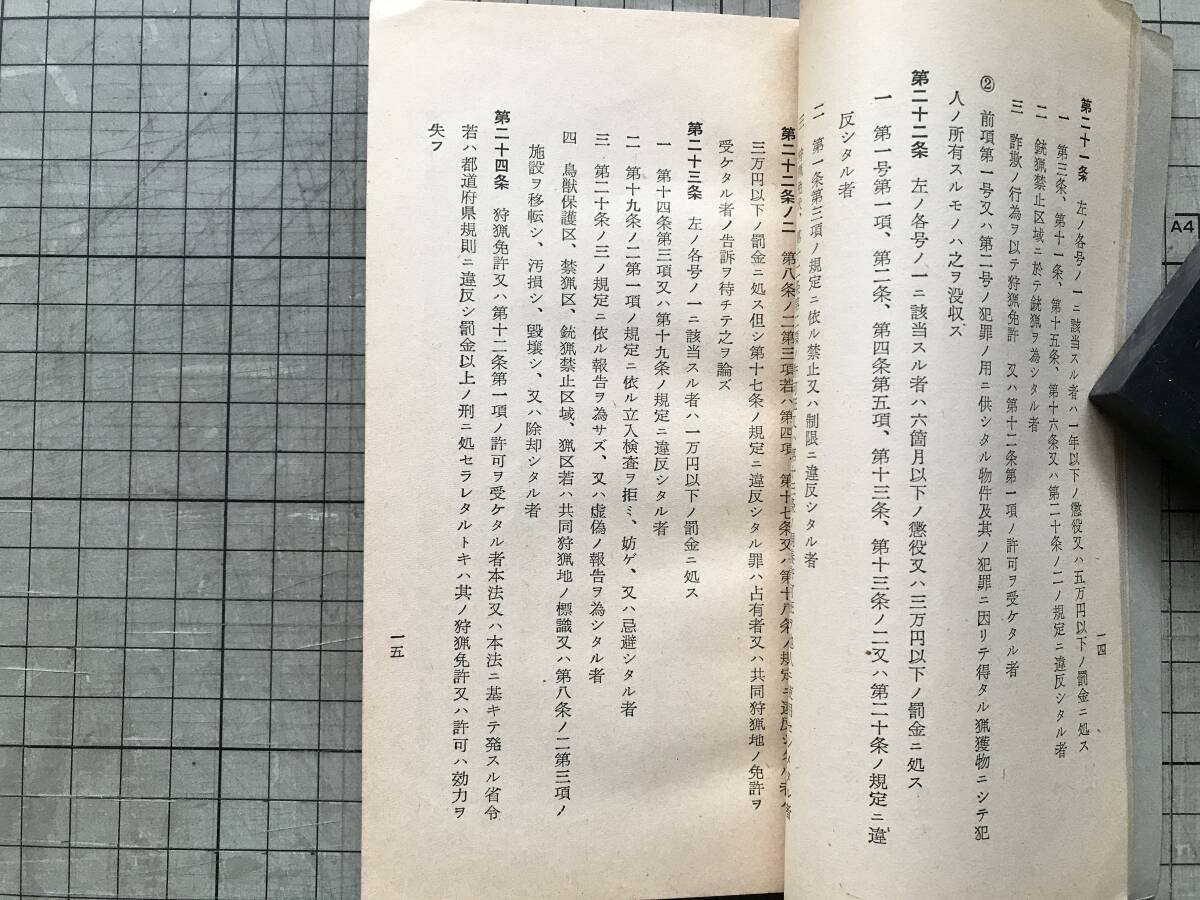 第二十一条 左ノ各号ノ一ニ該当スル者ハ一年以下ノ懲役又ハ五万円以下ノ罰金ニ処ス
一 第三条、第十一条、第十五条、第十六条又ハ第二十条ノ二ノ規定ニ違反シタル者
二 銃猟禁止区域ニ於テ銃猟ヲ為シタル者
三 詐欺ノ行為ヲ以テ狩猟免許 又ハ第十二条第一項ノ許可ヲ受ケタル者
② 前項第一号又ハ第二号ノ犯罪ノ用ニ供シタル物件及其ノ犯罪ニ因リテ得タル猟獲物ニシテ犯
人ノ所有スルモノハ之ヲ没収ス
第二十二条 左ノ各号ノ一ニ該当スル者ハ六箇月以下ノ懲役又ハ三万円以下ノ罰金ニ処ス
一 第一号第一項、第二条、第四条第五項、第十三条、第十三条ノ二又ハ第二十条ノ規定ニ違
反シタル者
二 第一条第三項ノ規定ニ依ル禁止又ハ制限ニ違反シタル者
三
一四
第二十二条ノ二 第八条ノ二第三項若ハ第四項、第十七条又ハ第十八条ノ規定ニ違反シタル者ハ
三万円以下ノ罰金ニ処ス但シ第十七条ノ規定ニ違反シタル罪ハ占有者又ハ共同狩猟地ノ免許ヲ
受ケタル者ノ告訴ヲ待チテ之ヲ論ズ
第二十三条 左ノ各号ノ一ニ該当スル者ハ一万円以下ノ罰金ニ処ス
一 第十四条第三項又ハ第十九条ノ規定ニ違反シタル者
二 第十九条ノ二第一項ノ規定ニ依ル立入検査ヲ拒ミ、妨ゲ、又ハ忌避シタル者
三 第二十条ノ三ノ規定ニ依ル報告ヲ為サズ、又ハ虚偽ノ報告ヲ為シタル者
四 鳥獣保護区、禁猟区、銃猟禁止区域、猟区若ハ共同狩猟地ノ標識又ハ第八条ノ二第三項ノ
施設ヲ移転シ、汚損シ、毀壊シ、又ハ除却シタル者
第二十四条 狩猟免許又ハ第十二条第一項ノ許可ヲ受ケタル者本法又ハ本法ニ基キテ発スル省令
若ハ都道府県規則ニ違反シ罰金以上ノ刑ニ処セラレタルトキハ其ノ狩猟免許又ハ許可ハ効力ヲ
失フ
一五
A4